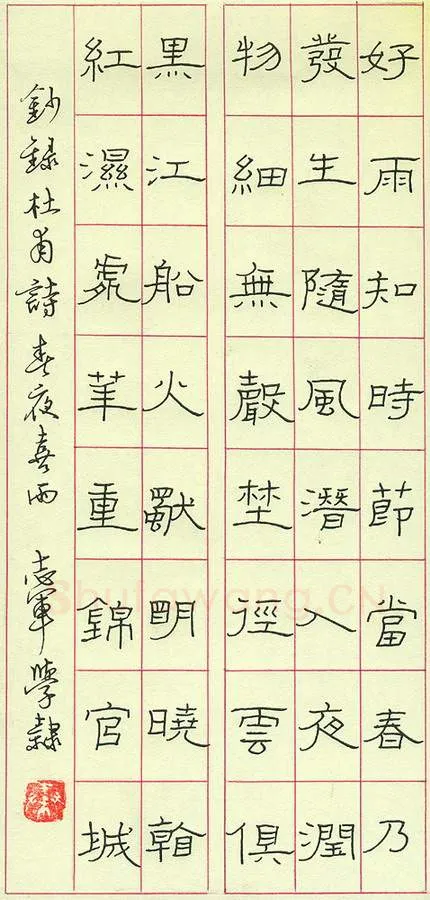 好雨知時節當春乃
發生隨風潛入夜潤
物細無聲埜徑雲俱
黑江船火獨明曉看
紅濕處華重錦官城
鈔錄杜甫詩春夜喜雨 志軍學隸
Shufawang.CN